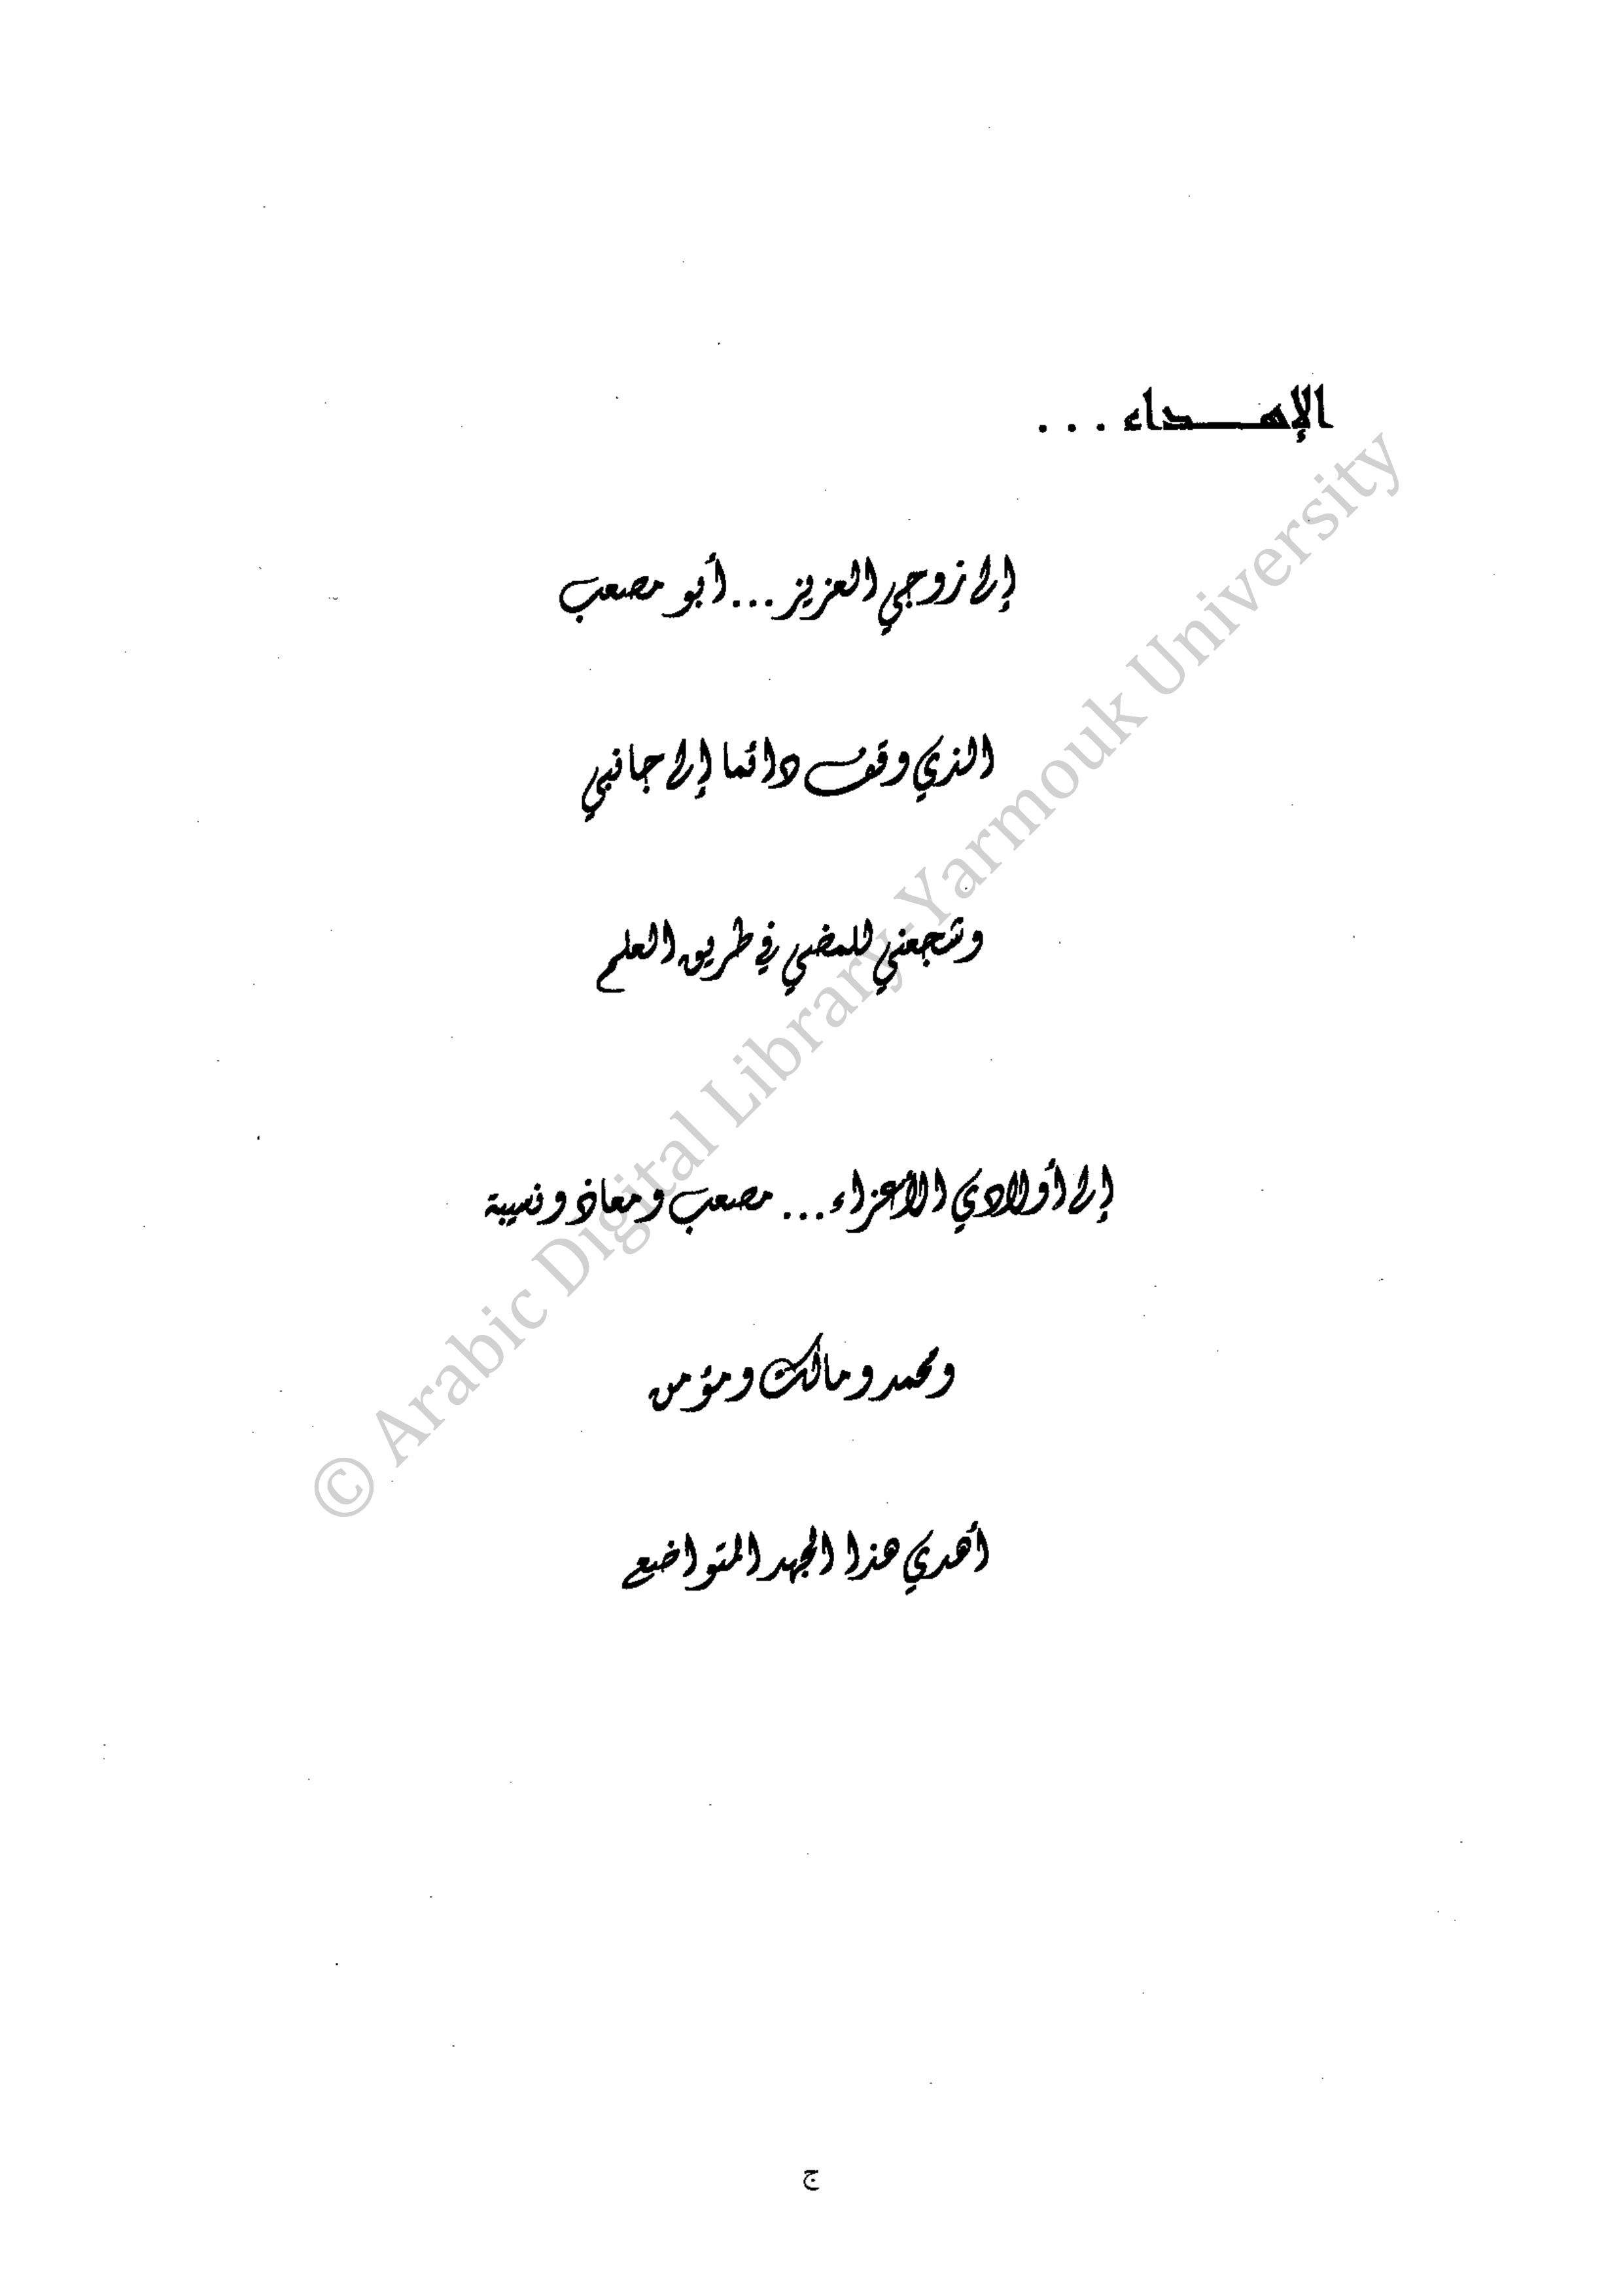 الإهـــداء ...
إلى زوجي العزيز ... أبو مصعب
الذي وقف دائما إلى جانبي
وشجعني للمضي في طريق العلم
إلى أولادي الأعزاء ... مصعب ومعاذ ونسيبة
ومحمد ومالك ومؤمن
أهدي هذا الجهد المتواضع
ج
© Arabic Digital Library-Yarmouk University